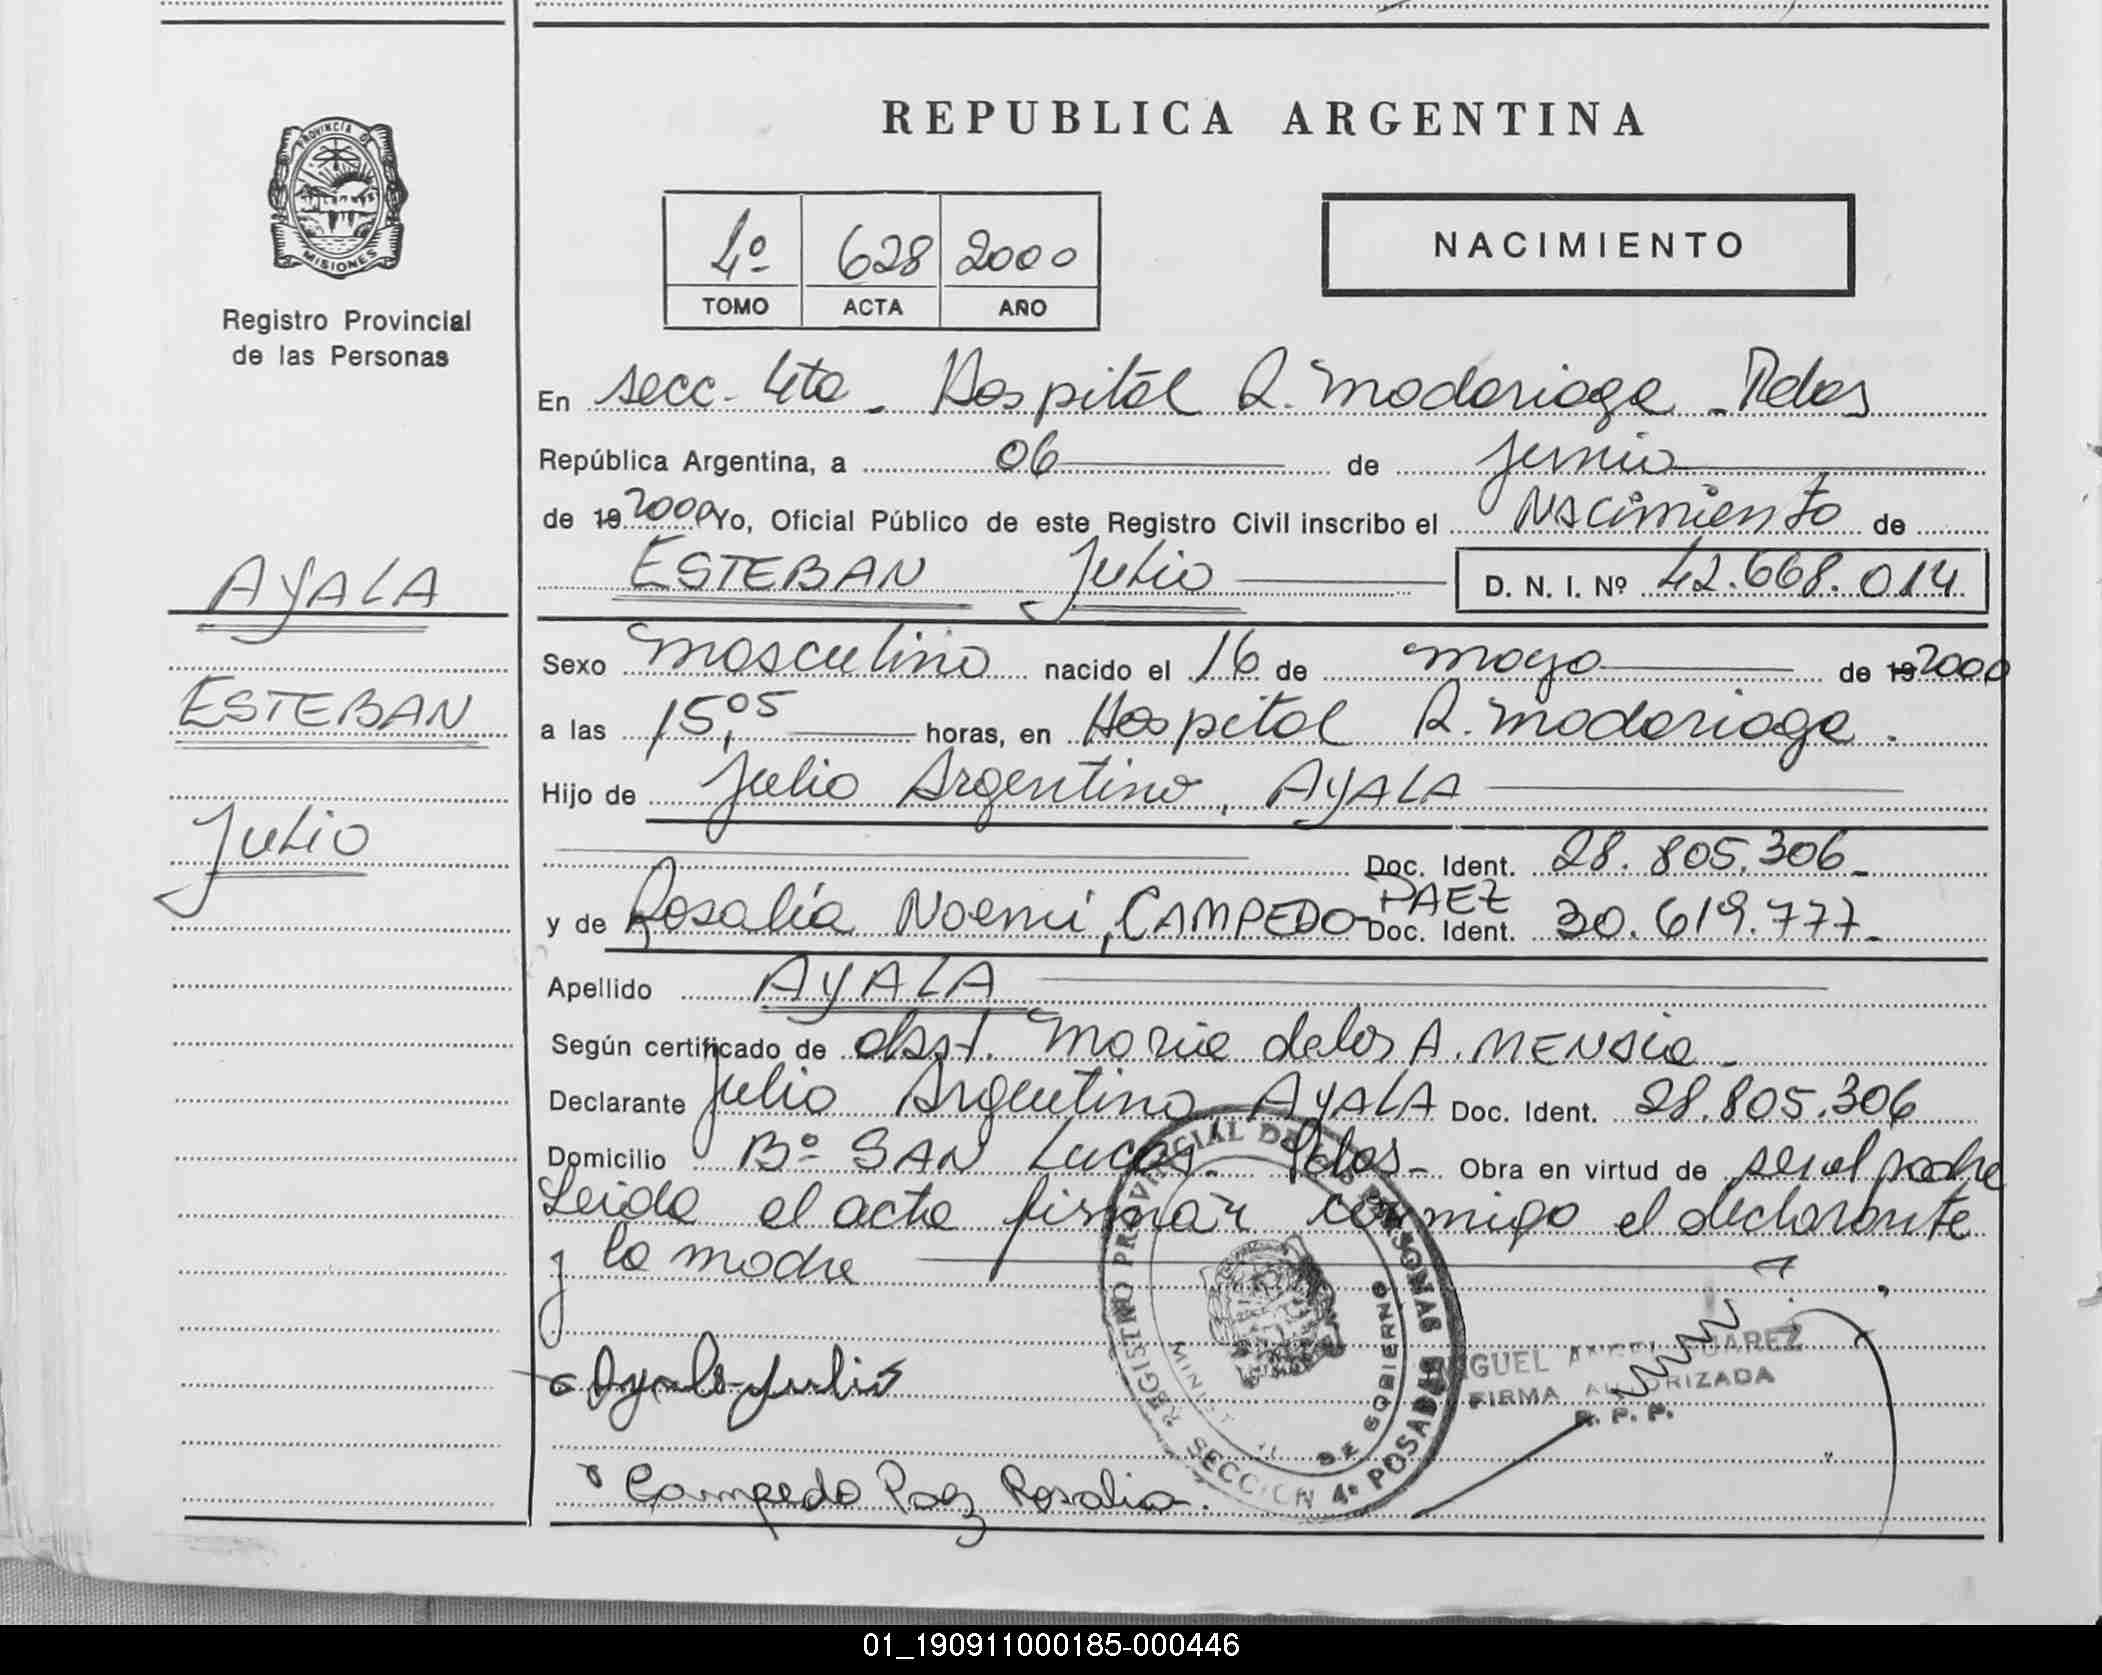 REPUBLICA ARGENTINA
PROVINCIA DE
MISIONES
Registro Provincial
de las Personas
4º 628 2000
TOMO ACTA AÑO
NACIMIENTO
En secc. 4ta. Hospital R. Madariaga - Pdas
República Argentina, a 06 de junio
de 19 2000 Yo, Oficial Público de este Registro Civil inscribo el Nacimiento de
ESTEBAN Julio D. N. I. Nº 42.668.014
AYALA
ESTEBAN
Julio
Sexo masculino nacido el 16 de mayo de 19 2000
a las 15,05 horas, en Hospital R. Madariaga.
Hijo de Julio Argentino, AYALA
Doc. Ident. 28.805.306
y de Rosalía Noemí, CAMPEDO PAEZ Doc. Ident. 30.619.777
Apellido AYALA
Según certificado de obst. Maria delos A.
Declarante Julio Argentino AYALA Doc. Ident. 28.805.306
Domicilio Bº SAN Lucas - Pdas - Obra en virtud de ser el padre
Leida el acta firmar conmigo el declarante
y la madre
Ayala Julio
REGISTRO PROVINCIAL DE LAS PERSONAS
DE GOBIERNO
SECCION 4ª POSADAS
MIGUEL ANGEL SUAREZ
FIRMA AUTORIZADA
R. P. P.
Campedo Paez Rosalia.
01_190911000185-000446